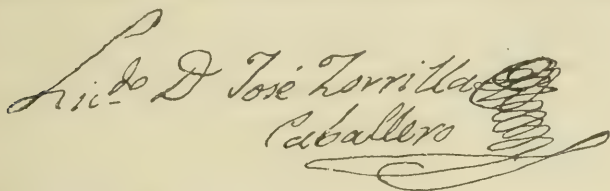 Lic.do D José Zorrilla
Caballero